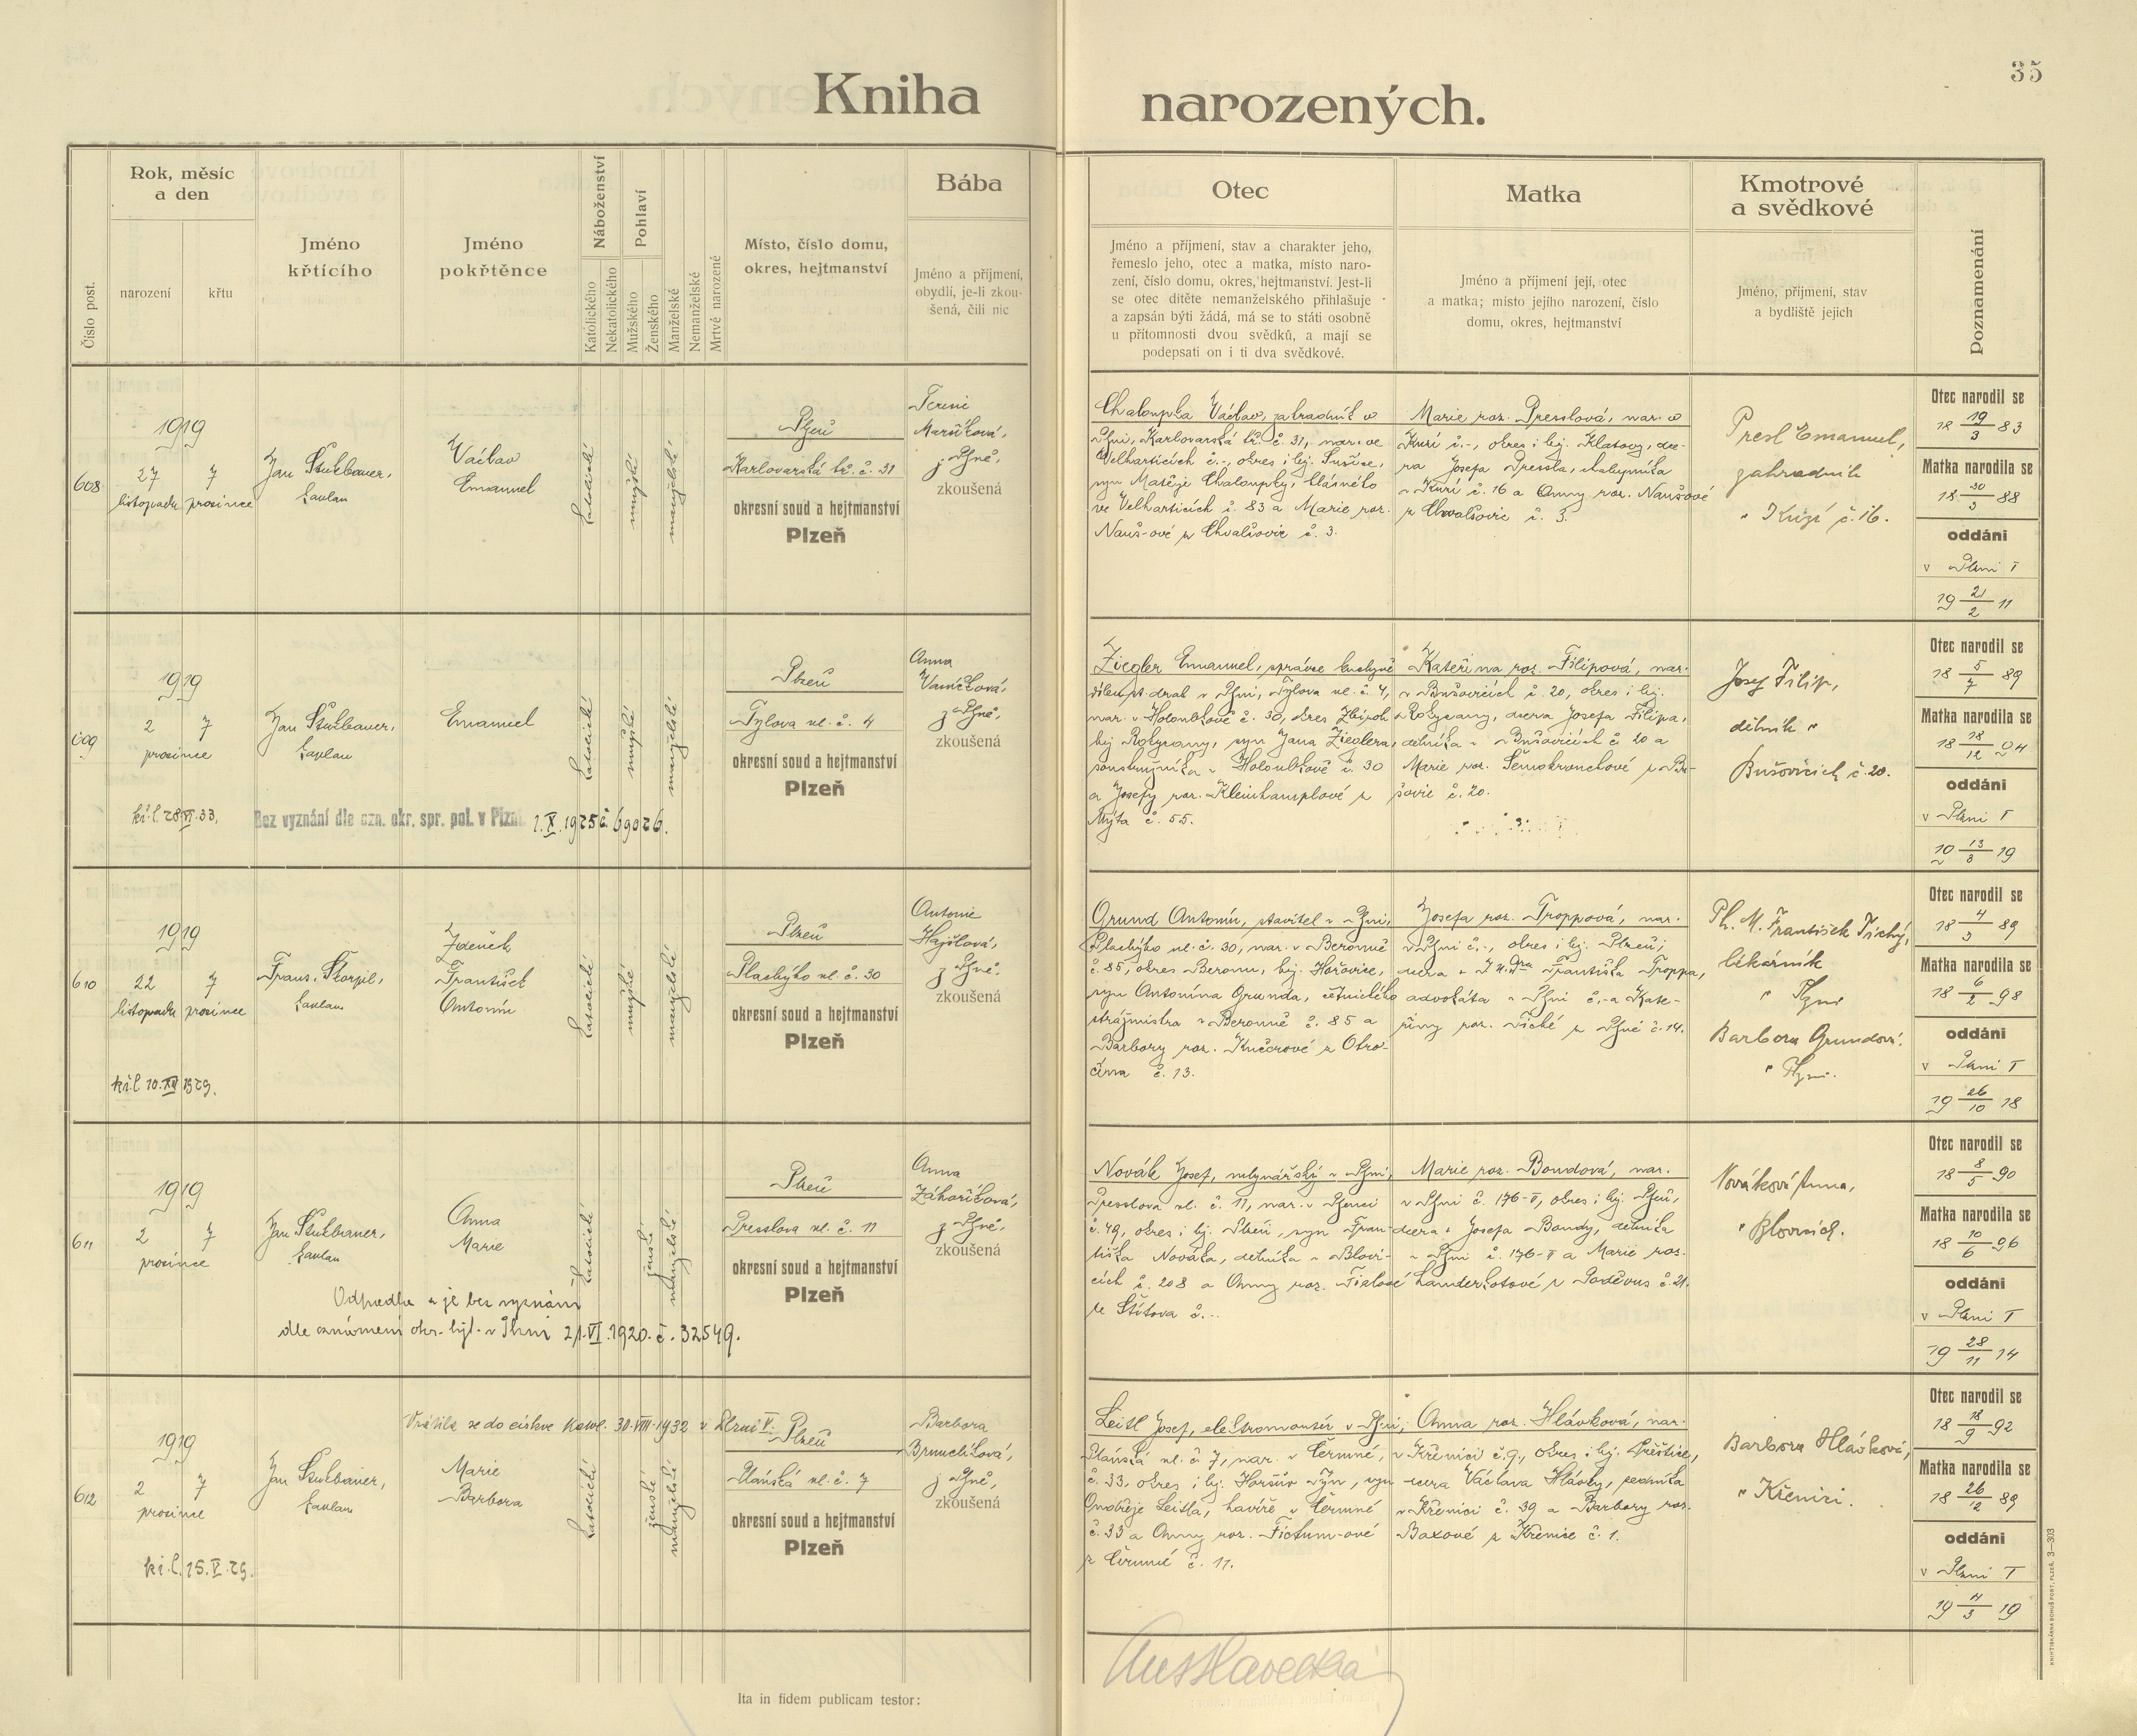 35
Kniha narozených.
Číslo post.
Rok, měsíc
a den
narození
křtu
Jméno
křtícího
Jméno
pokřtěnce
Náboženství
Katolického
Nekatolického
Pohlaví
Mužského
Ženského
Manželské
Nemanželské
Mrtvě narozené
Místo, číslo domu,
okres, hejtmanství
Bába
Jméno a příjmení,
obydlí, je-li zkou-
šená, čili nic
Otec
Jméno a příjmení, stav a charakter jeho,
řemeslo jeho, otec a matka, místo naro-
zení, číslo domu, okres, hejtmanství. Jest-li
se otec dítěte nemanželského přihlašuje
a zapsán býti žádá, má se to státi osobně
u přítomnosti dvou svědků, a mají se
podepsati on i ti dva svědkové.
Matka
Jméno a příjmení její, otec
a matka; místo jejího narození, číslo
domu, okres, hejtmanství
Kmotrové
a svědkové
Jméno, příjmení, stav
a bydliště jejich
Poznamenání
608
1919
27 7
listopadu prosince
Jan Štulbauer,
kaplan
Václav
Emanuel
katolické
mužské
manželské
Plzeň
Karlovarská tř. č. 31
okresní soud a hejtmanství
Plzeň
Terezie
Maříková,
z Plzně,
zkoušená
Chaloupka Václav, zahradník v
Plzni, Karlovarská tř. č. 31, nar. ve
Velharticích č.-, okres i hej. Sušice,
syn Matěje Chaloupky, hlásného
ve Velharticích č. 83 a Marie roz.
Nauš-ové z Chvalšovic č. 3.
Marie roz. Presslová, nar. v
č.-, okres i hej. Klatovy, dce-
ra Josefa Pressla, chalupníka
č. 16 a Anny roz. Naušové
z Chvalšovic č. 3.
Presl Emanuel,
zahradník
č. 16.
Otec narodil se
18 19/3 83
Matka narodila se
18 30/3 88
oddáni
v Plzni I
19 21/2 11
609
1919
2 7
prosince
Jan Štulbauer,
kaplan
Emanuel
katolické
mužské
manželské
Plzeň
Tylova ul. č. 4
okresní soud a hejtmanství
Plzeň
Anna
Vaníčková,
z Plzně,
zkoušená
kř. l. 28.VI.33.
Bez vyznání dle ozn. okr. spr. pol. v Plzni 1.X.1925 č. 69026.
Ziegler Emanuel, správce kuchyně
drah v Plzni, Tylova ul. č. 4,
nar. v Holoubkově č. 30, okres Zbiroh
hej. Rokycany, syn Jana Zieglera,
v Holoubkově č. 30
a Josefy roz. Kleinhamplové z
Mýta č. 55.
Kateřina roz. Filipová, nar.
v Bušovicích č. 20, okres i hej.
Rokycany, dcera Josefa Filipa,
dělníka v Bušovicích č. 20 a
Marie roz. z Bu-
šovic č. 20.
Josef Filip,
dělník v
Bušovicích č. 20.
Otec narodil se
18 5/7 89
Matka narodila se
18 18/12 94
oddáni
v Plzni I
19 13/3 19
610
1919
22 7
listopadu prosince
Frant. Škorpil,
kaplan
Zdeněk
František
Antonín
katolické
mužské
manželské
Plzeň
Plachýho ul. č. 30
okresní soud a hejtmanství
Plzeň
Antonie
Hajšlová,
z Plzně,
zkoušená
kř. l. 10.XII 1929.
Grund Antonín, stavitel v Plzni,
Plachýho ul. č. 30, nar. v Berouně
č. 85, okres Beroun, hej. Hořovice,
syn Antonína Grunda, četnického
strážmistra v Berouně č. 85 a
Barbory roz. Kučerové z Otro-
čína č. 13.
Josefa roz. Troppová, nar.
v Plzni č.-, okres i hej. Plzeň,
dcera JUDra Františka Troppa,
advokáta v Plzni č.- a Kate-
řiny roz. Tiché z Plzně č. 14.
Ph. M. František Tichý,
lékárník
v Plzni
Barbora Grundová
v Plzni.
Otec narodil se
18 4/3 89
Matka narodila se
18 6/2 98
oddáni
v Plzni I
19 26/10 18
611
1919
2 7
prosince
Jan Štulbauer,
kaplan
Anna
Marie
katolické
ženské
manželské
Plzeň
Presslova ul. č. 11
okresní soud a hejtmanství
Plzeň
Anna
Záhoříková,
z Plzně,
zkoušená
Odpadla a je bez vyznání
dle oznámení okr. hejt. v Plzni 21.VI.1920. č. 32549.
Novák Josef, mlynářský v Plzni,
Presslova ul. č. 11, nar. v
č. 49, okres i hej. Plzeň, syn Fran-
tiška Nováka, dělníka v Blovi-
cích č. 208 a Anny roz. Fialové
ze Štítova č.-
Marie roz. Boudová, nar.
v Plzni č. 176-II, okres i hej. Plzeň,
dcera Josefa Boudy, dělníka
v Plzni č. 176-II a Marie roz.
č. 21.
Nováková Anna,
v Blovicích.
Otec narodil se
18 8/5 90
Matka narodila se
18 10/6 96
oddáni
v Plzni I
19 28/11 14
612
Vrátila se do církve katol. 30.VIII.1932 v Plzni V.
1919
2 7
prosince
Jan Štulbauer,
kaplan
Marie
Barbora
katolické
ženské
manželské
Plzeň
Úlańská ul. č. 7
okresní soud a hejtmanství
Plzeň
Barbora
Brunclíková,
z Plzně,
zkoušená
kř. l. 15.V.29.
Leitl Josef, elektromontér v Plzni,
ul. č. 7, nar. v Čermné,
č. 33, okres i hej. Horšův Týn, syn
Ondřeje Leitla, havíře v Čermné
č. 33 a Anny roz. Fictum-ové
z Čermné č. 11.
Anna roz. Hlávková, nar.
v Křenici č. 9, okres i hej. Přeštice,
dcera Václava Hlávky, sedníka
v Křenici č. 39 a Barbory roz.
Baxové z Křenic č. 1.
Barbora Hlávková,
v Křenici.
Otec narodil se
18 18/9 92
Matka narodila se
18 26/12 89
oddáni
v Plzni I
19 11/3 19
Ita in fidem publicam testor:
KNIHTISKÁRNA BOHUŠ PORT, PLZEŇ. 3—303